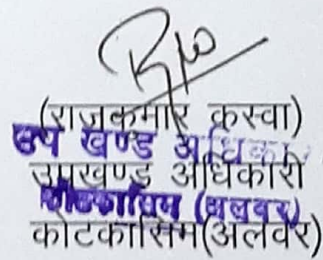 (राजकुमार कस्वा)
उप खण्ड अधिकारी
उपखण्ड अधिकारी
कोटकासिम (अलवर)
कोटकासिम(अलवर)